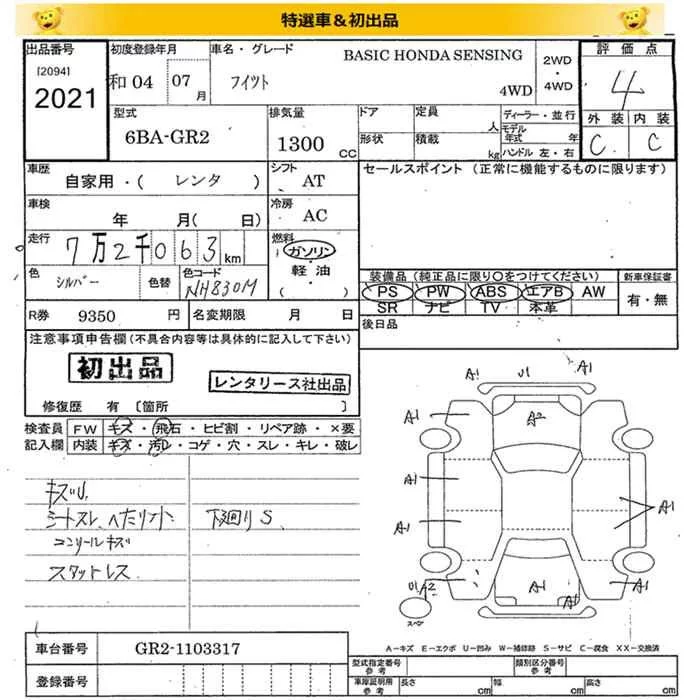 特選車＆初出品
出品番号
[2094]
2021
初度登録年月
和04 07月
車名・グレード
フィット
BASIC HONDA SENSING
4WD
2WD・4WD
評価点
4
外装 内装
C C
型式
6BA-GR2
排気量
1300 CC
ドア
形状
定員 人
積載 kg
ディーラー・並行
モデル年式 年
ハンドル 左・右
車歴
自家用・( レンタ )
シフト
AT
セールスポイント (正常に機能するものに限ります)
車検
年 月( 日)
冷房
AC
走行
7万2千063km
燃料
ガソリン
軽・油
( )
色
シルバー
色替
色コード
NH830M
装備品 (純正品に限り〇をつけてください)
PS PW ABS エアB AW
SR ナビ TV 本革
新車保証書
有・無
R券 9350 円
名変期限 月 日
後日品
注意事項申告欄(不具合内容等は具体的に記入して下さい)
初出品
レンタリース社出品
修復歴 有 〔箇所 〕
検査員記入欄
FW キズ・飛石・ヒビ割・リペア跡・×要
内装 キズ・汚レ・コゲ・穴・スレ・キレ・破レ
キズU
シートスレ、へたり
コンソールキズ
スタットレス
下廻りS
A1 U1 A1
A1 A2 A1
A1
A1 A1
U1 A2 A1 A1 A1
スペア
A－キズ E－エクボ U－凹み W－補修跡 S－サビ C－腐食 XX－交換済
車台番号 GR2-1103317
登録番号
型式指定番号 参考
類別区分番号 参考
車庫証明用 参考
長さ cm 幅 cm 高さ cm